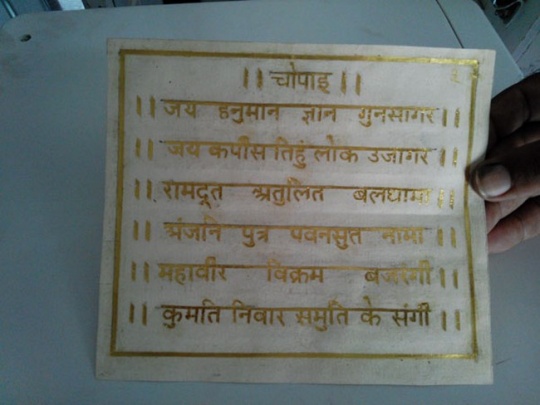 || चोपाइ ||
|| जय हनुमान ज्ञान गुनसागर ||
|| जय कपीस तिहुं लोक उजागर ||
|| रामदूत अतुलित बलधामा ||
|| अंजनि पुत्र पवनसुत नामा ||
|| महावीर विक्रम बजरंगी ||
|| कुमति निवार समुति के संगी ||